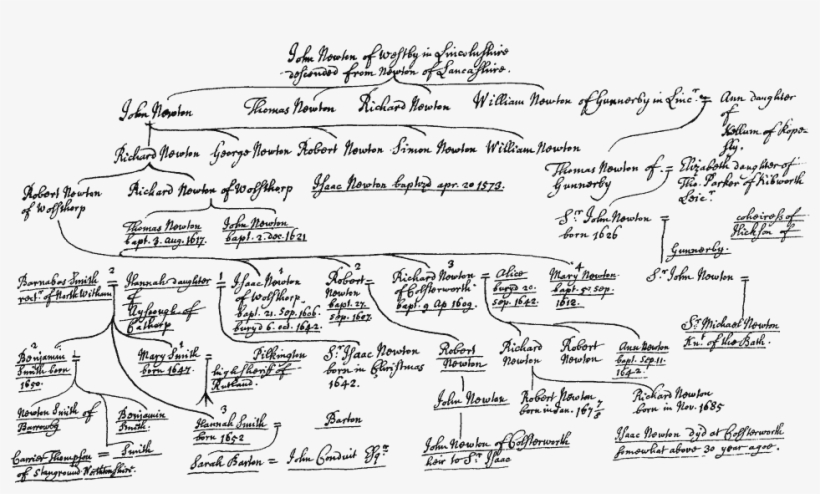 John Newton of Westby in Lincolnshire
descended from Newton of Lancashire.
John Newton Thomas Newton Richard Newton William Newton of Gunnerby in Linc. = Ann daughter
of
Kellum of Rope-
sly.
Richard Newton George Newton Robert Newton Simon Newton William Newton
Thomas Newton of = Elizabeth daughter of
Gunnerby Tho. Parker of Kibworth
Leic.
Robert Newton
of Wolsthorp
Richard Newton of Wolsthorp Isaac Newton baptzd apr. 20 1573.
Thomas Newton
bapt. 3. aug. 1617.
John Newton
bapt. 2. dec. 1621
Sr. John Newton =
born 1626
coheiress of
Hickson of
Gunnerby.
Barnabas Smith
rectr. of North Witham
2 =
Hannah daughter
of
Ayscough of
Cathorp
1 =
Isaac Newton 1
of Wolsthorp
bapt. 21. Sep. 1606.
buryd 6. oct. 1642.
2
Robert =
Newton
bapt. 27.
Sep. 1607.
3
Richard Newton =
of Colsterworth
bapt. 9. Ap 1609.
Alice
buryd 20.
Sep. 1642.
4
Mary Newton
bapt. 5. Sep.
1612.
Sr. John Newton =
Sr. Michael Newton
Knt. of the Bath.
2
Benjamin =
Smith born
1650.
1
Mary Smith =
born 1647.
Pilkington
high sheriff of
Rutland.
Sr. Isaac Newton
born in Christmas
1642.
Robert
Newton
Richard
Newton
Robert
Newton
Ann Newton
bapt. Sep. 11.
1642.
Newton Smith of
Barrowby
Benjamin
Smith.
3
Hannah Smith =
born 1652
Barton
John Newton
Robert Newton
born in Jan. 167 7/8
Richard Newton
born in Nov. 1685
Carrier Thompson = Smith
of Stanground Northtonshire.
Sarah Barton = John Conduit Esqr.
John Newton of Colsterworth
heir to Sr. Isaac
Isaac Newton dyd at Colsterworth
somewhat above 30 year agoe.